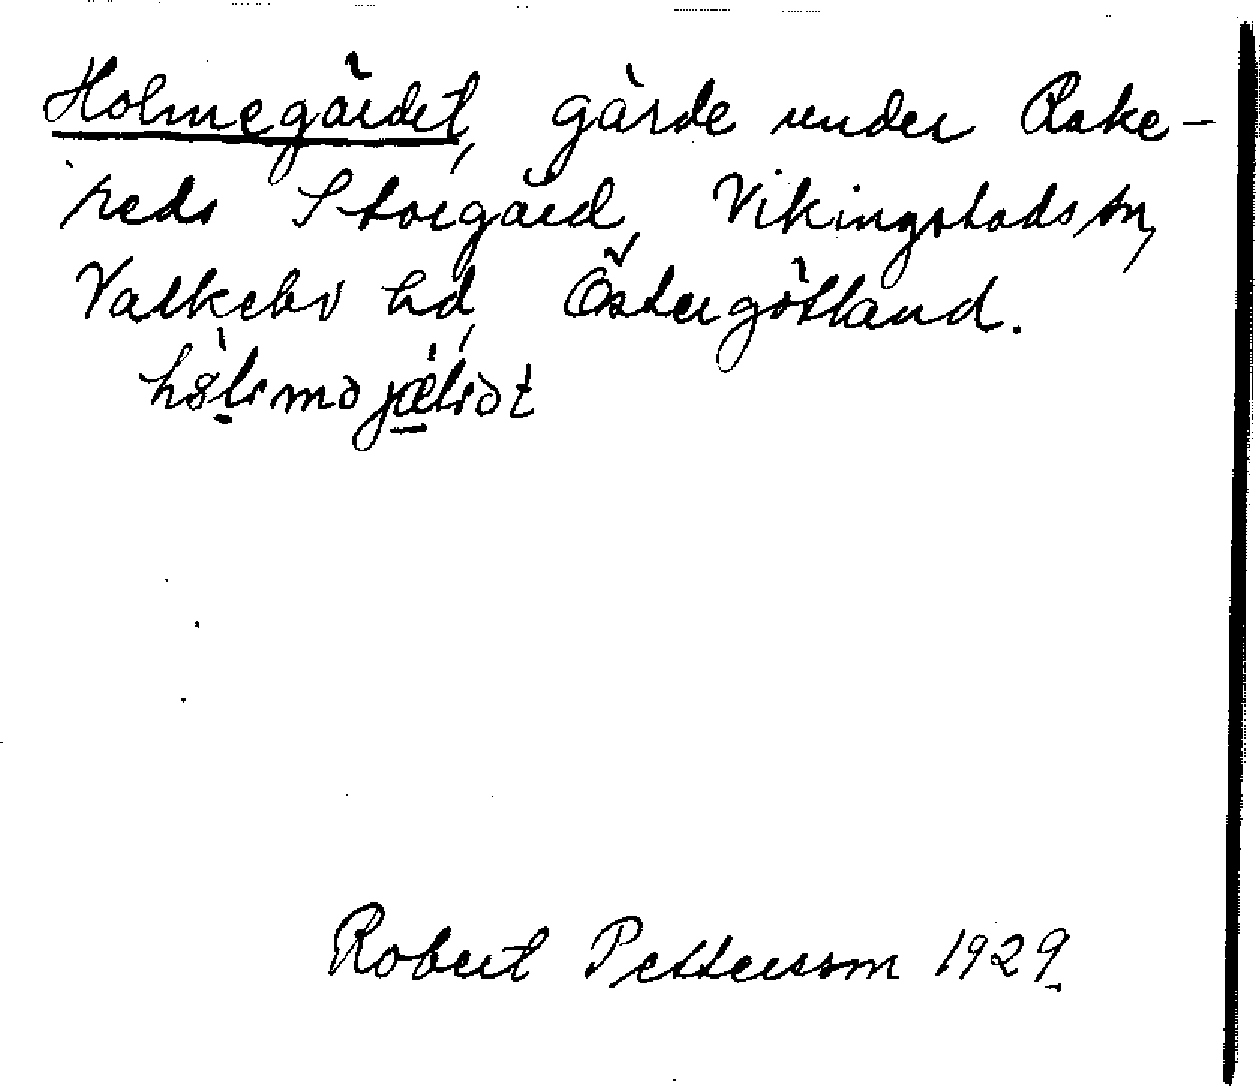 Holmegärdet, gärde under Rake-
reds Storgård, Vikingstads sn,
Valkebo hd, Östergötland.
Robert Pettersson 1929.